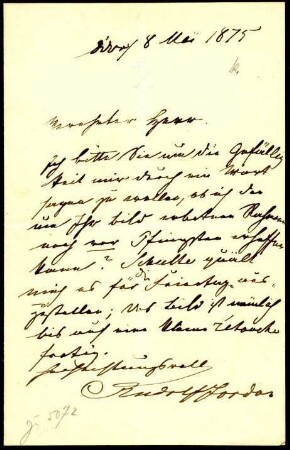 Ddorf 8 Mai 1875
Verehrter Herr.
Ich bitte Sie um die Gefällig
keit mir durch ein Wort
sagen zu wollen, ob ich den
um Ihr Bild erbetenen Rahmen
noch vor Pfingsten erhalten
kann? Schulte quält
mich es für die Feiertage aus-
zustellen; das Bild ist nämlich
bis auf eine kleine Retouche
fertig.
Hochachtungsvoll
Rudolf Jordan